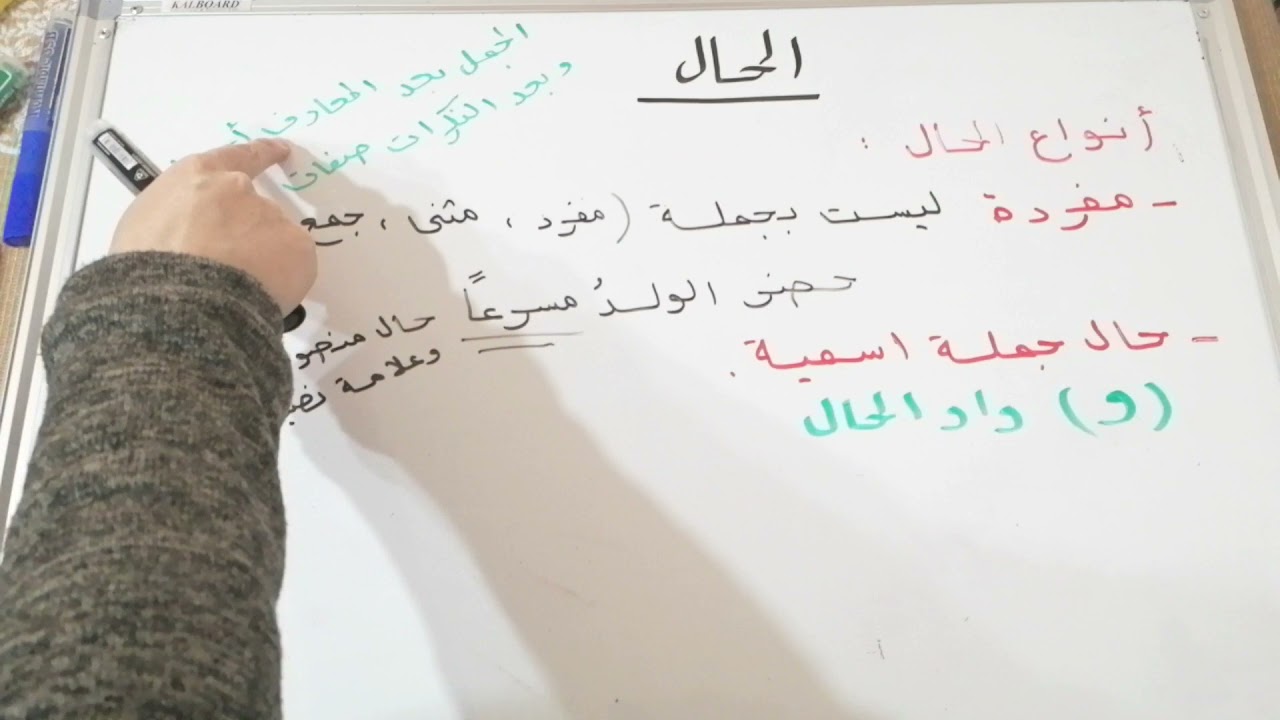 KALBOARD
الحال
الجمل بعد المعارف
و بعد النكرات صفات
أنواع الحال :
- مفردة ليست بجملة (مفرد ، مثنى ، جمع
حضر الولدُ مسرعاً حال
وعلامة
- حال جملة اسمية .
(و) واو الحال